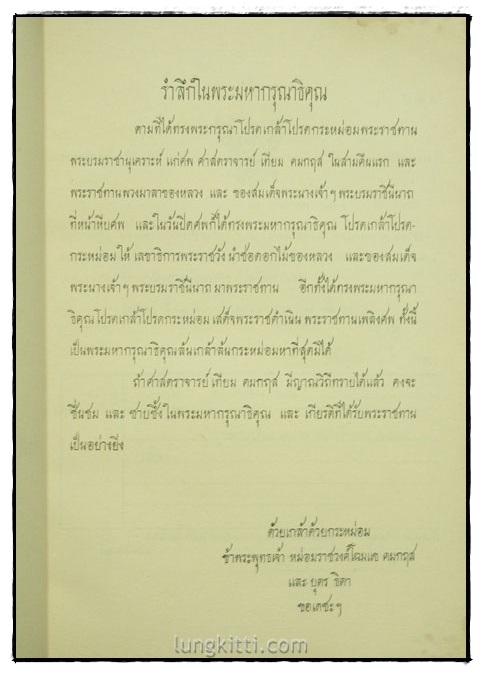 รำลึกในพระมหากรุณาธิคุณ
ตามที่ได้ทรงพระกรุณาโปรดเกล้าโปรดกระหม่อมพระราชทาน
พระบรมราชานุเคราะห์ แก่ศพ ศาสตราจารย์ เทียม คมกฤส ในสามคืนแรก และ
พระราชทานพวงมาลาของหลวง และ ของสมเด็จพระนางเจ้าฯ พระบรมราชินีนาถ
ที่หน้าหีบศพ และในวันปิดศพก็ได้ทรงพระมหากรุณาธิคุณ โปรดเกล้าโปรด-
กระหม่อม ให้ เลขาธิการพระราชวัง นำช่อดอกไม้ของหลวง และของสมเด็จ
พระนางเจ้าฯ พระบรมราชินีนาถ มาพระราชทาน อีกทั้งได้ทรงพระมหากรุณา
ธิคุณโปรดเกล้าโปรดกระหม่อม เสด็จพระราชดำเนิน พระราชทานเพลิงศพ ทั้งนี้
เป็นพระมหากรุณาธิคุณล้นเกล้าล้นกระหม่อมหาที่สุดมิได้
ถ้าศาสตราจารย์ เทียม คมกฤส มีญาณวิถีทราบได้แล้ว คงจะ
ชื่นชม และ ซาบซึ้งในพระมหากรุณาธิคุณ และ เกียรติที่ได้รับพระราชทาน
เป็นอย่างยิ่ง
ด้วยเกล้าด้วยกระหม่อม
ข้าพระพุทธเจ้า หม่อมราชวงศ์โฉมแข คมกฤส
และ บุตร ธิดา
ขอเดชะฯ
lungkitti.com